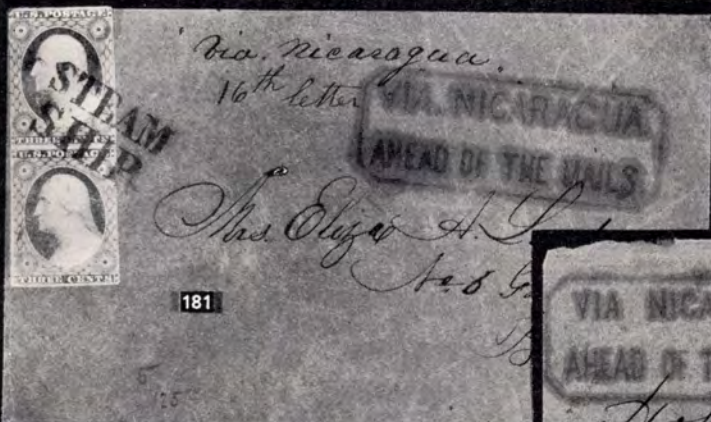 U.S. POSTAGE
THREE CENTS
U.S. POSTAGE
THREE CENTS
STEAM
SHIP
Via. Nicaragua.
16th letter
VIA. NICARAGUA
AHEAD OF THE MAILS
Mrs. Eliza A.
No 8
181
VIA NICA
AHEAD OF T